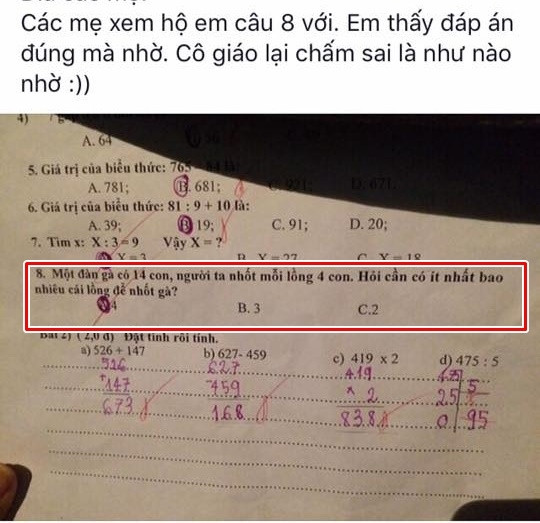 Các mẹ xem hộ em câu 8 với. Em thấy đáp án
đúng mà nhờ. Cô giáo lại chấm sai là như nào
nhờ :))
4)
A. 64
5. Giá trị của biểu thức: 765
A. 781; B. 681; D. 671.
6. Giá trị của biểu thức: 81 : 9 + 10 là:
A. 39; B 19; C. 91; D. 20;
7. Tìm x: X : 3 = 9 Vậy X = ?
X = 3 B X = 27 C X = 18
8. Một đàn gà có 14 con, người ta nhốt mỗi lồng 4 con. Hỏi cần có ít nhất bao
nhiêu cái lồng để nhốt gà?
4 B. 3 C.2
Bài 2) ( 2,0 đ) Đặt tính rồi tính.
a) 526 + 147 b) 627- 459 c) 419 x 2 d) 475 : 5
526 627 419 475 5
+147 459 x 2 25
673 168 838 0 95